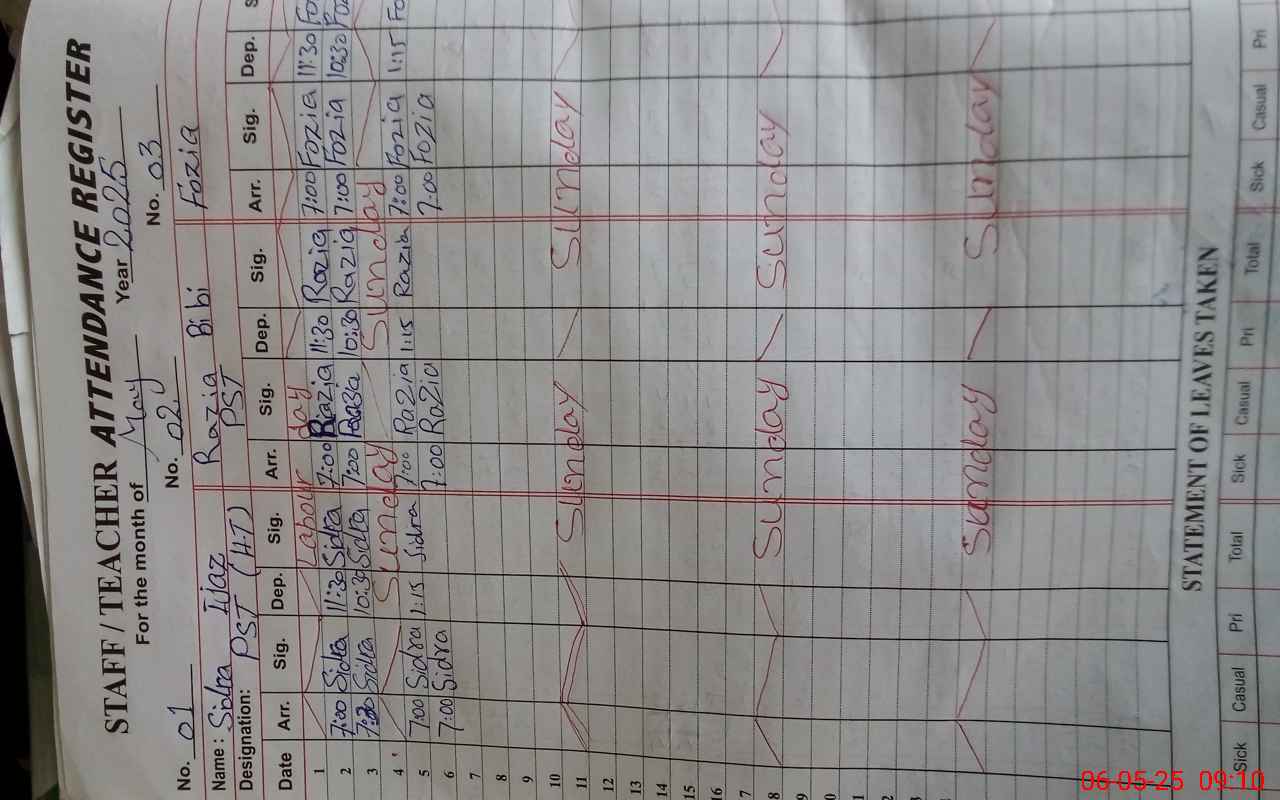 STAFF / TEACHER ATTENDANCE REGISTER
For the month of May Year 2025
No. 01 No. 02 No. 03
Name: Sidra Ijaz Razia Bibi Fozia
Designation: PST (H.T) PST
Date Arr. Sig. Dep. Sig. Arr. Sig. Dep. Sig. Arr. Sig. Dep.
1 Labour day
2 7:00 Sidra 11:30 Sidra 7:00 Razia 11:30 Razia 7:00 Fozia 11:30 Fo
3 7:00 Sidra 10:30 Sidra 7:00 10:30 Razia 7:00 Fozia 10:30 Fo
4 Sunday Sunday
5 7:00 Sidra 1:15 Sidra 7:00 Razia 1:15 Razia 7:00 Fozia 1:15 Fo
6 7:00 Sidra 7:00 Razia 7:00 Fozia
7
8
9
10
11 Sunday Sunday
12
13
14
15
16
7
8 Sunday Sunday
9
0
1
2
Sunday Sunday
STATEMENT OF LEAVES TAKEN
Sick Casual Pri Total Sick Casual Pri Total Sick Casual Pri
06-05-25 09:10